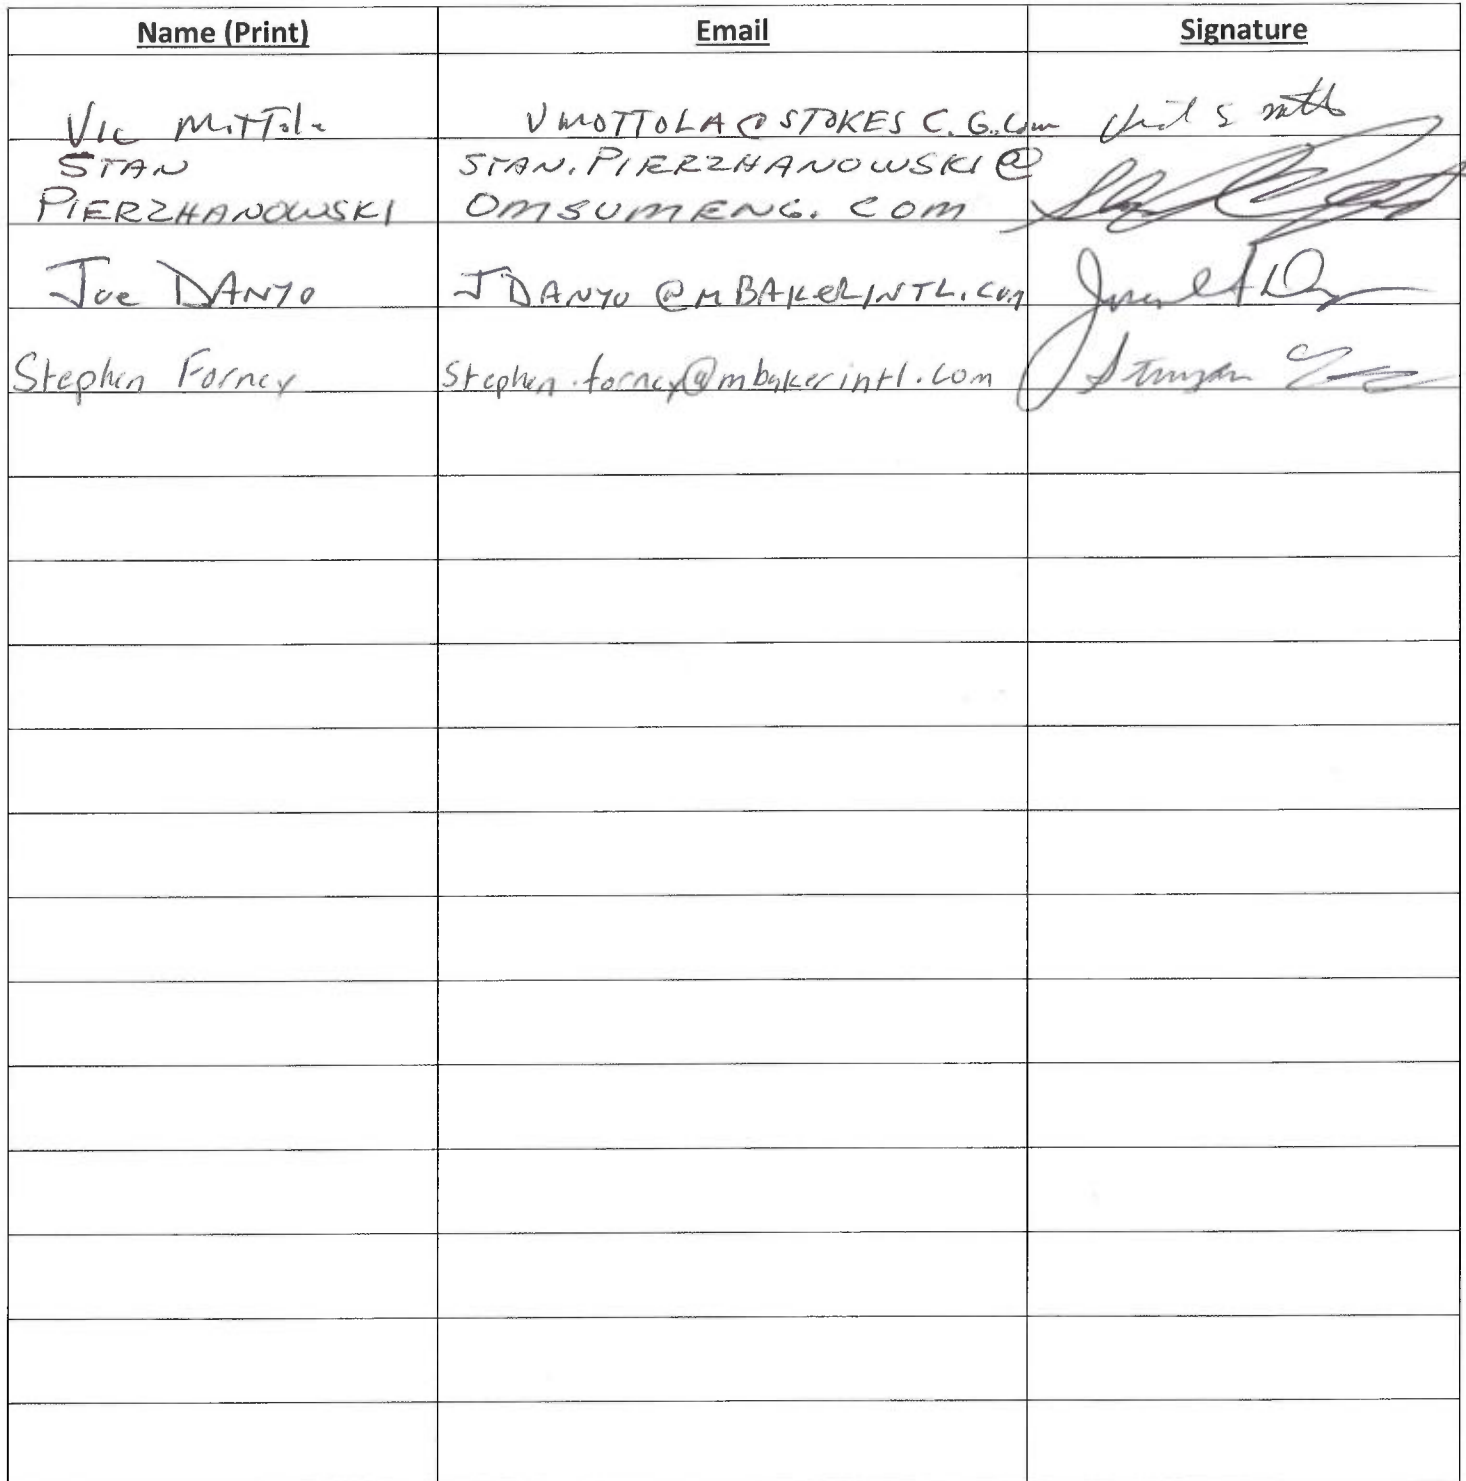 Name (Print) Email Signature
Vic Mottola VMOTTOLA@STOKES C.G.Com
STAN STAN.PIERZHANOWSKI@
PIERZHANOWSKI OMSUMENG.COM
Joe DANYO JDANYO@MBAKERINTL.COM
Stephen Forney Stephen.forney@mbakerintl.com